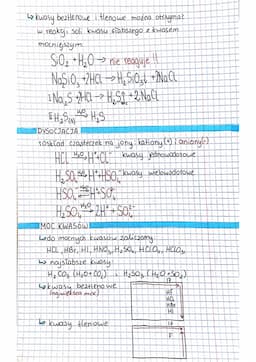 ↳ kwasy beztlenowe i tlenowe można otrzymać
w reakcji soli kwasu słabszego z kwasem
mocniejszym
SiO₂ + H₂O → nie reaguje !!
Na₂SiO₃ + 2HCl → H₂SiO₃↓ + 2NaCl
I Na₂S + 2HCl → H₂S↑ + 2NaCl
II H₂S(g) H₂O→ H₂S
DYSOCJACJA
↳ rozkład cząsteczek na jony: kationy(+) i aniony(-)
HCl H₂O→ H⁺ + Cl⁻ kwasy jednowodorowe
H₂SO₄ ⇄ H⁺ + HSO₄⁻ kwasy wielowodorowe
HSO₄⁻ ⇄ H⁺ + SO₄²⁻
H₂SO₄ H₂O→ 2H⁺ + SO₄²⁻
MOC KWASÓW
↳ do mocnych kwasów zaliczamy:
HCl, HBr, HI, HNO₃, H₂SO₄, HClO₄, HClO₃
↳ najsłabsze kwasy:
H₂CO₃ (H₂O + CO₂) i H₂SO₃ (H₂O + SO₂)
↳ kwasy beztlenowe 17
(największa moc) HF
HCl
HBr
HI
↳ kwasy tlenowe 17